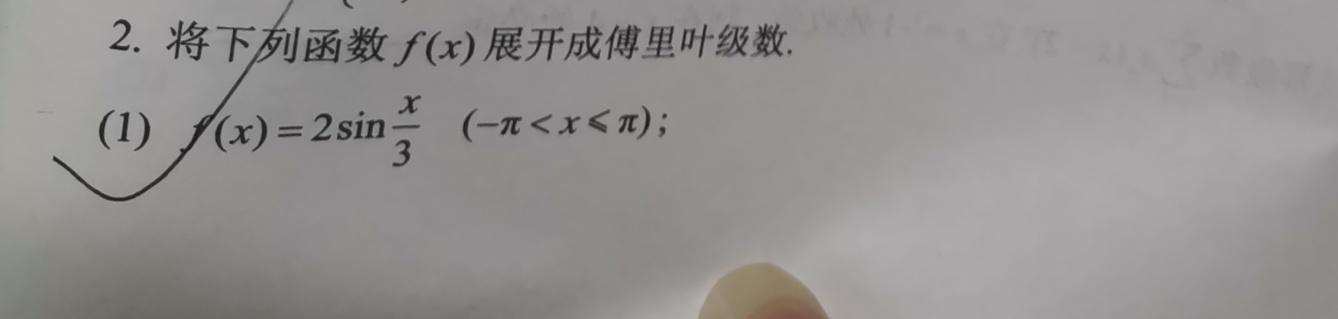 2. 将下列函数 f(x) 展开成傅里叶级数.
(1) f(x) = 2sin x/3 (-π < x ⩽ π);